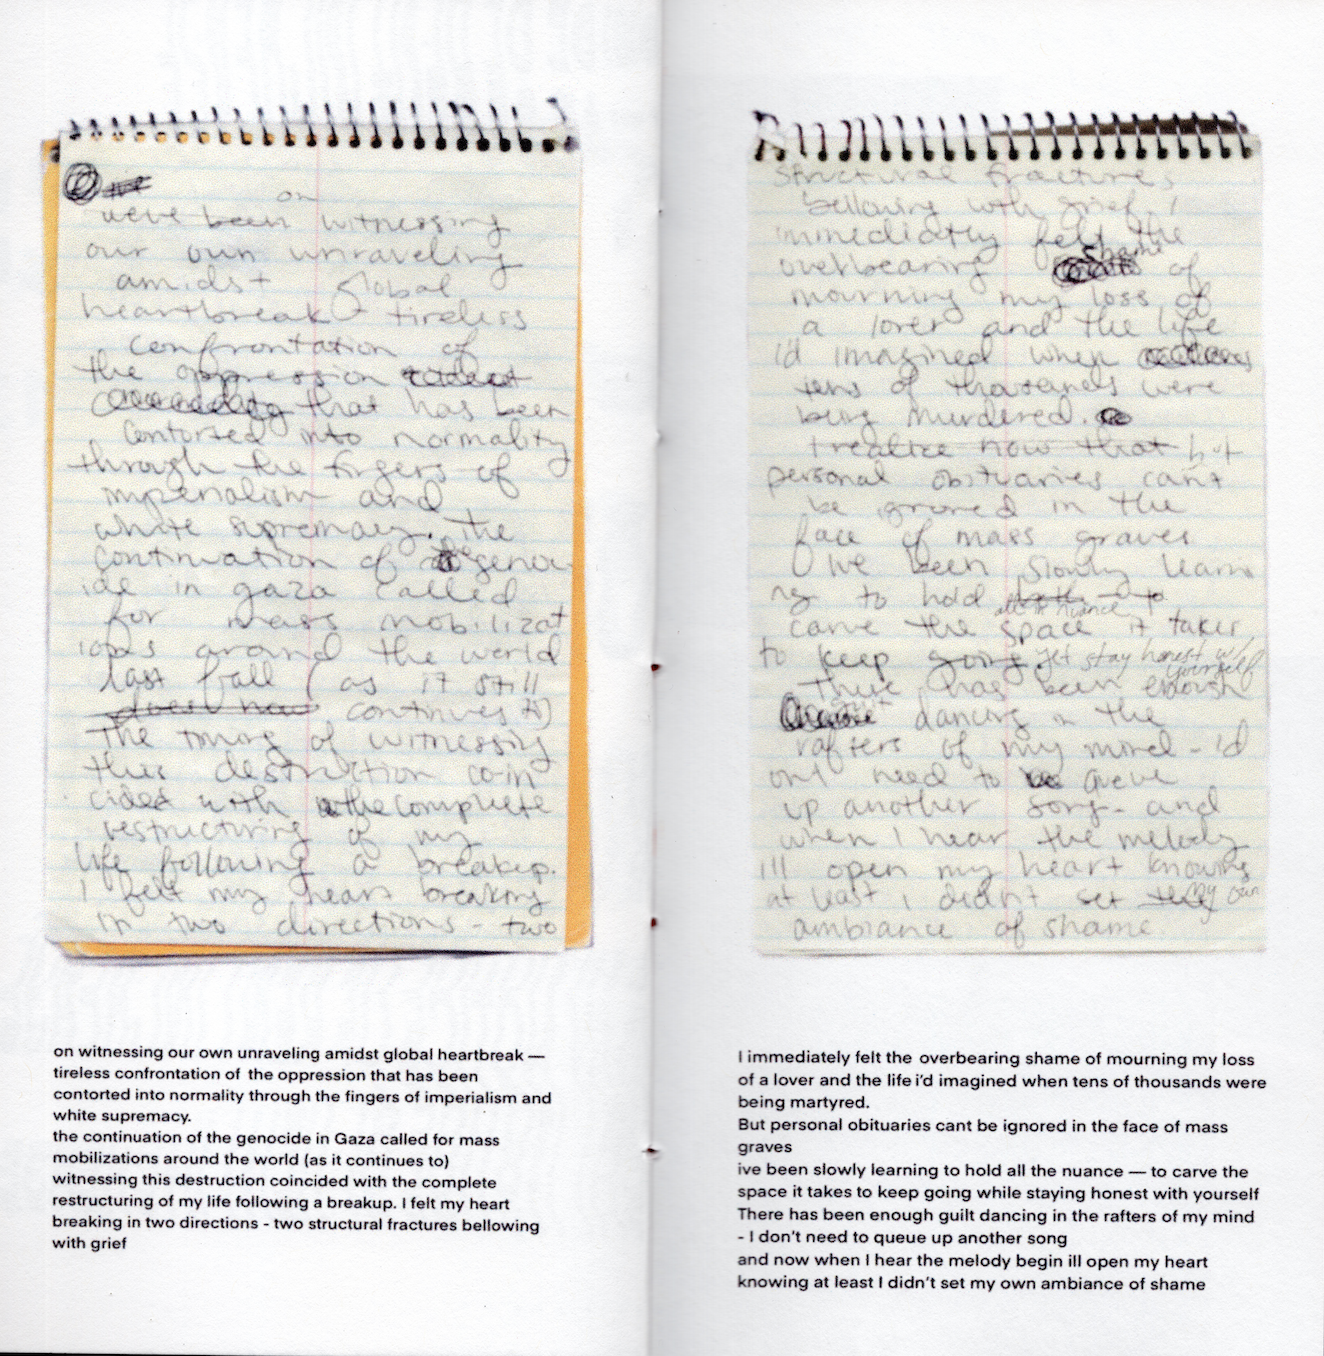 on
weve been witnessing
our own unraveling
amidst global
heartbreak - tireless
confrontation of
the oppression
that has been
contorted into normality
through the fingers of
imperialism and
white supremacy. The
continuation of the genoc
ide in gaza called
for mass mobilizat
ions around the world
last fall (as it still
does now continues to)
The timing of witnessing
this destruction coin
cided with the complete
restructuring of my
life following a breakup.
I felt my heart breaking
in two directions - two
on witnessing our own unraveling amidst global heartbreak —
tireless confrontation of the oppression that has been
contorted into normality through the fingers of imperialism and
white supremacy.
the continuation of the genocide in Gaza called for mass
mobilizations around the world (as it continues to)
witnessing this destruction coincided with the complete
restructuring of my life following a breakup. I felt my heart
breaking in two directions - two structural fractures bellowing
with grief
structural fractures,
bellowing with grief. I
immediatly felt the
overbearing shame of
mourning my loss of
a lover and the life
i'd imagined when
tens of thousands were
being murdered.
I realize now that but
personal obituaries can't
be ignored in the
face of mass graves
I've been slowly learni
ng to hold
all the nuance
carve the space it takes
to keep going yet stay honest w/
yourself
There has been enough
guilt dancing in the
rafters of my mind - i'd
need to queue
up another song - and
when I hear the melody
ill open my heart knowing
at least i didn't set my own
ambiance of shame
I immediately felt the overbearing shame of mourning my loss
of a lover and the life i'd imagined when tens of thousands were
being martyred.
But personal obituaries cant be ignored in the face of mass
graves
ive been slowly learning to hold all the nuance — to carve the
space it takes to keep going while staying honest with yourself
There has been enough guilt dancing in the rafters of my mind
- I don't need to queue up another song
and now when I hear the melody begin ill open my heart
knowing at least I didn't set my own ambiance of shame